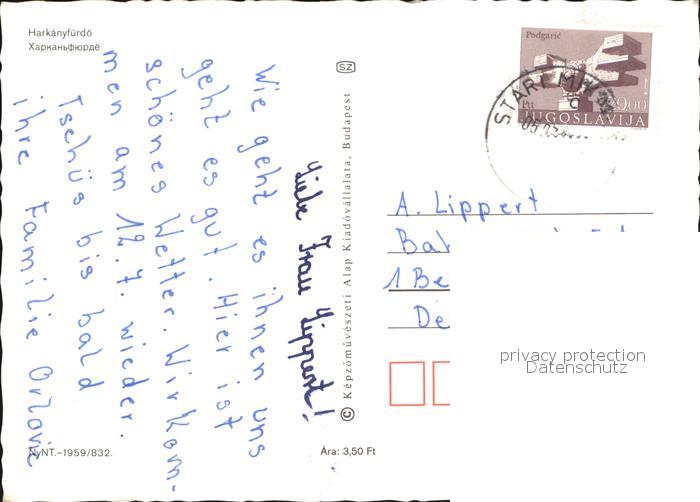 Harkányfürdő
Харканьфюрдё
Liebe Frau Lippert!
Wie geht es ihnen uns
geht es gut. Hier ist
schönes Wetter. Wir kom-
men am 12.7. wieder.
Tschüs bis bald
ihre Familie Orlovic
SZ
© Képzőművészeti Alap Kiadóvállalata, Budapest
NyNT.–1959/832.
Ára: 3,50 Ft
Podgarić
Ptt
JUGOSLAVIJA
STARI
A. Lippert
Bal
1 Be
De
privacy protection
Datenschutz